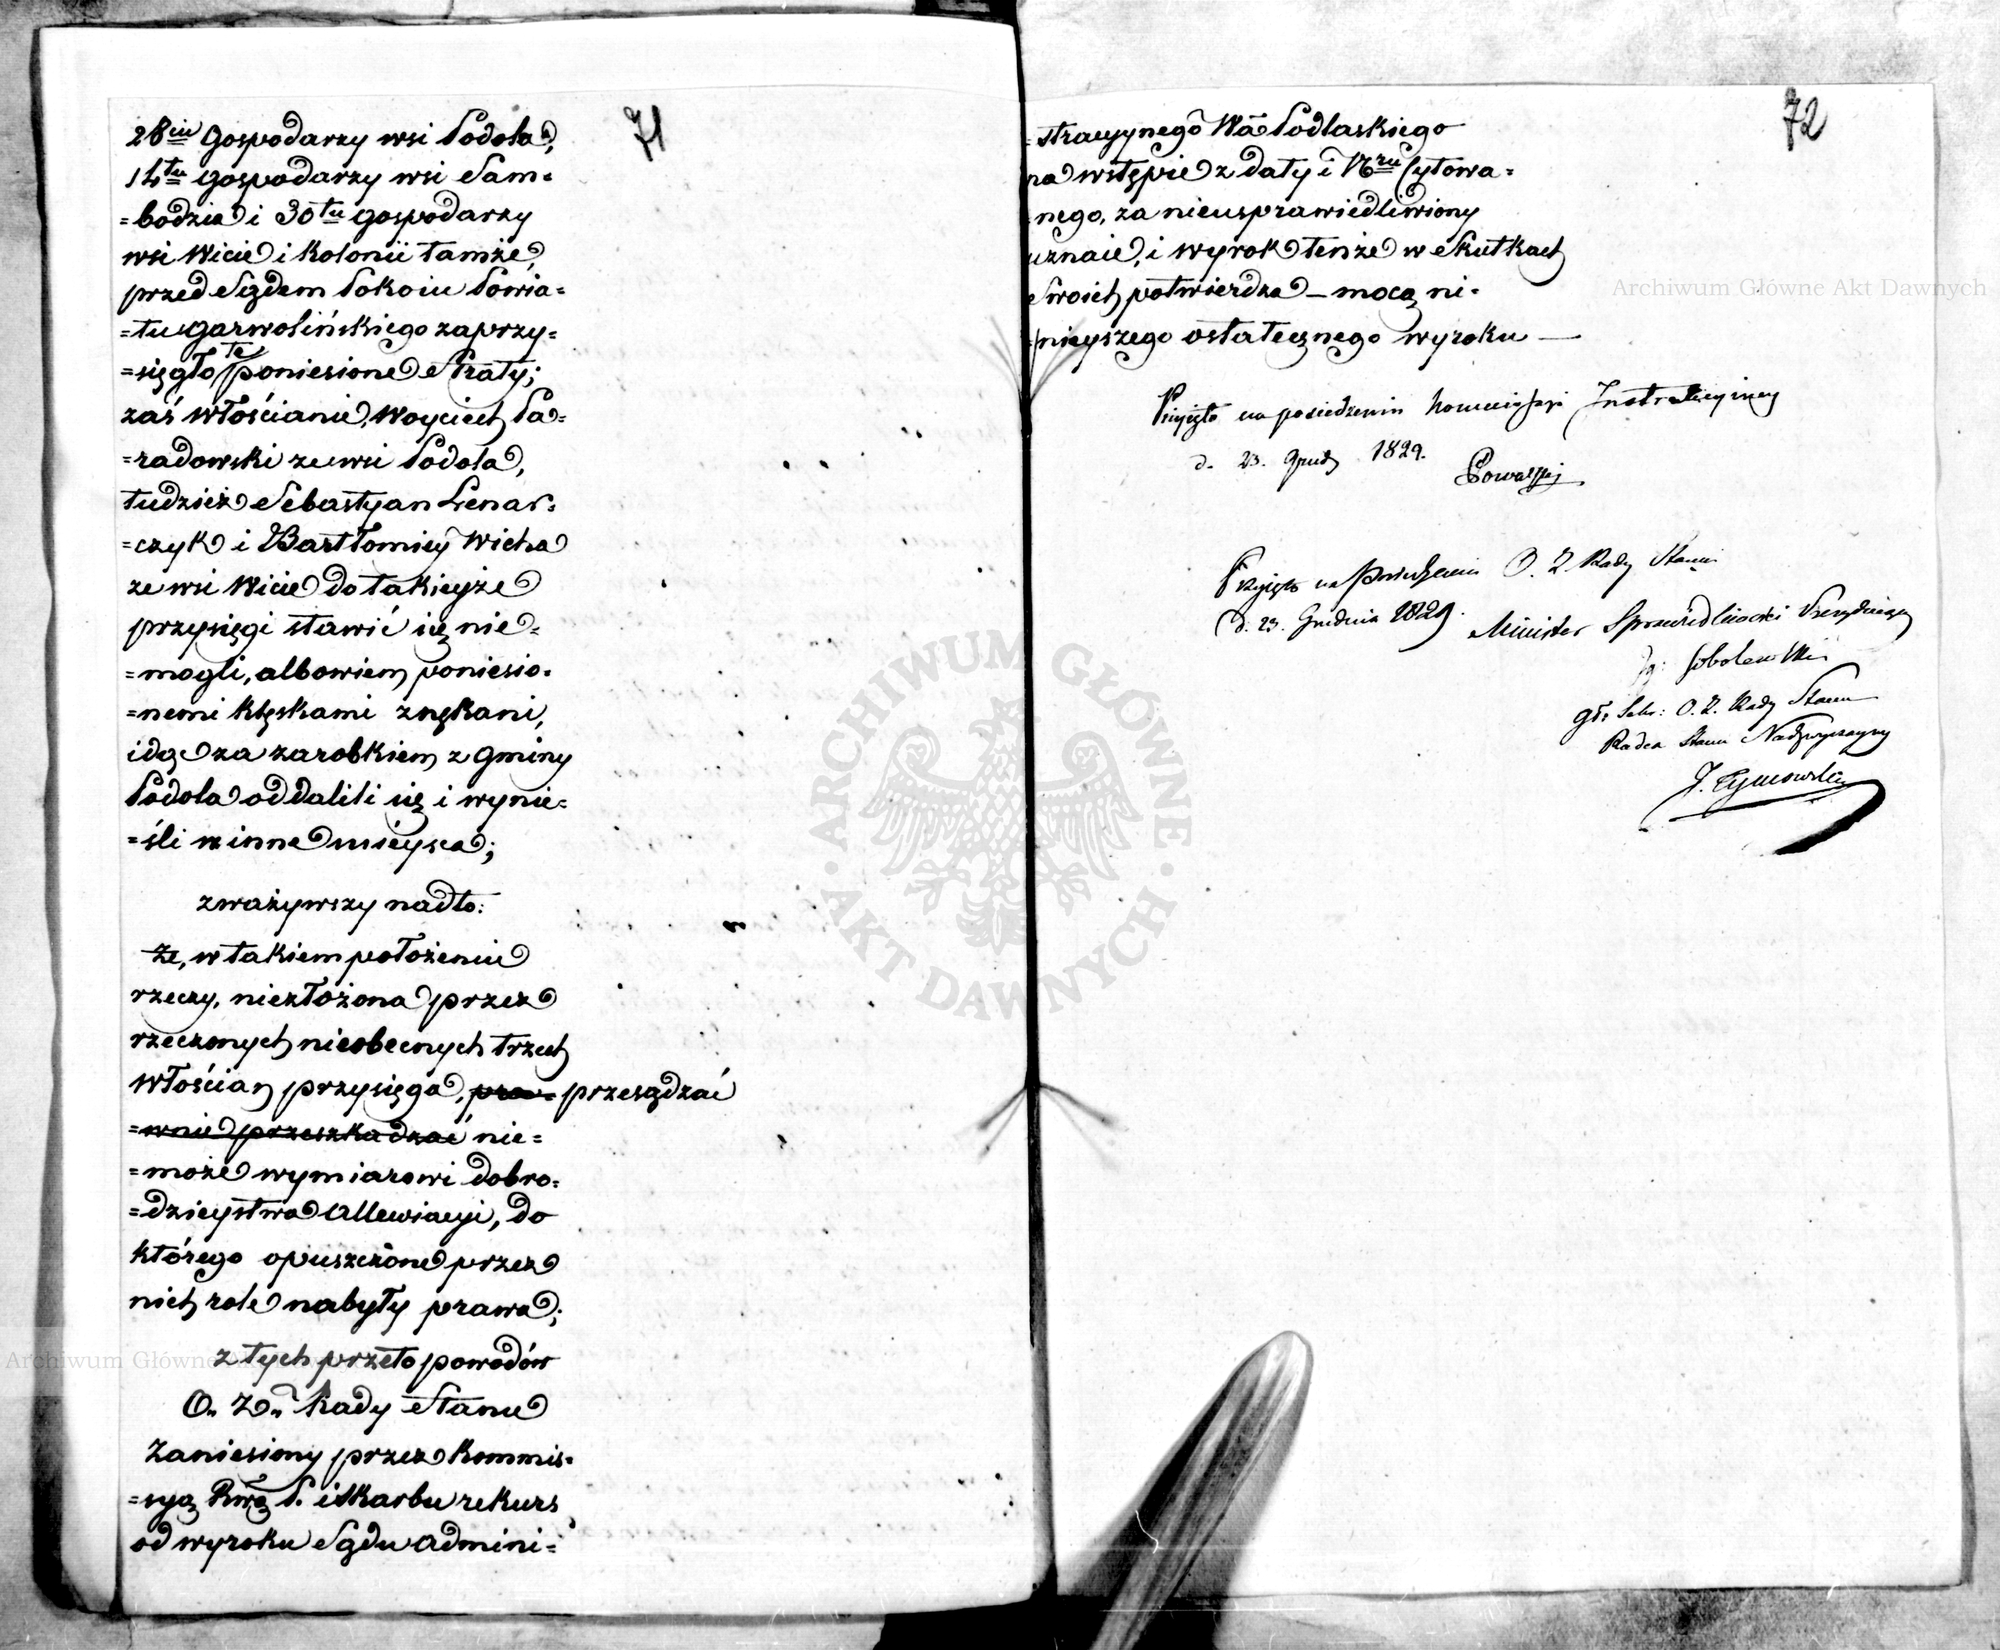 71
28iu Gospodarzy wsi Podola,
14tu Gospodarzy wsi Sam=
=bodzia i 30tu gospodarzy
wsi Wicie i Kolonii tamże,
przed Sądem Pokoiu Powia=
=tu Garwolińskiego zaprzy=
=sięgło te poniesione Straty;
zaś włościanie, Woyciech Pa=
=radowski ze wsi Podola,
tudzież Sebastyan Lenar=
=czyk i Bartłomiey Wicha
ze wsi Wicie do takieyże
przysięgi stawić się nie=
=mogli, albowiem poniesio=
=nemi klęskami znękani,
idąc za zarobkiem z Gminy
Podola oddalili się i wynie=
=śli w inne mieysca;
zważywszy nadto:
że, w takiem położeniu
rzeczy, niezłożona przez
rzeczonych nieobecnych trzech
włościan przysięga, pra= przesądzać
=wnie przeszkadzać nie=
=może wymiarowi dobro=
=dzieystwa Allewiacyi, do
którego opuszczone przez
nich role nabyły prawa;
z tych przeto powodów
O. Z. Rady Stanu
Zaniesiony przez Kommis=
=syą Rwą P. i Skarbu rekurs
od wyroku Sądu Admini=
72
=stracyynego Wa Podlaskiego
na wstępie z daty i Nru Cytowa=
=nego, za nieusprawiedliwiony
uznaie, i wyrok tenże w Skutkach
Swoich potwierdza — mocą ni=
=nieyszego ostatecznego wyroku —
Przyjęto na posiedzeniu Kommissyi Instrukcyiney
d. 23. Grud 1829.
Przyjęto na Posiedzeniu O. Z. Rady Stanu
d. 23. Grudnia 1829.
Minister Sprawiedliwości Prezyduiący
Sobolewski
Sekr: O. Z. Rady Stanu
Radca Stanu Nadzwyczayny
J. Tymowski
Archiwum Główne Akt Dawnych
Archiwum Główne
ARCHIWUM GŁÓWNE · AKT DAWNYCH ·